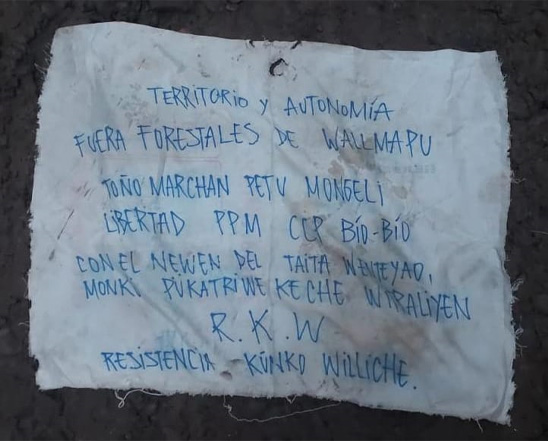 TERRITORIO Y AUTONOMÍA
FUERA FORESTALES DE WALLMAPU
TOÑO MARCHAN PETU MONGELI
LIBERTAD PPM CCP BÍO-BÍO
CON EL NEWEN DEL TAITA WENTEYAO,
MONKI PUKATRIWEKECHE WIRALIYEN
R.K.W
RESISTENCIA KÜNKO WILLICHE.